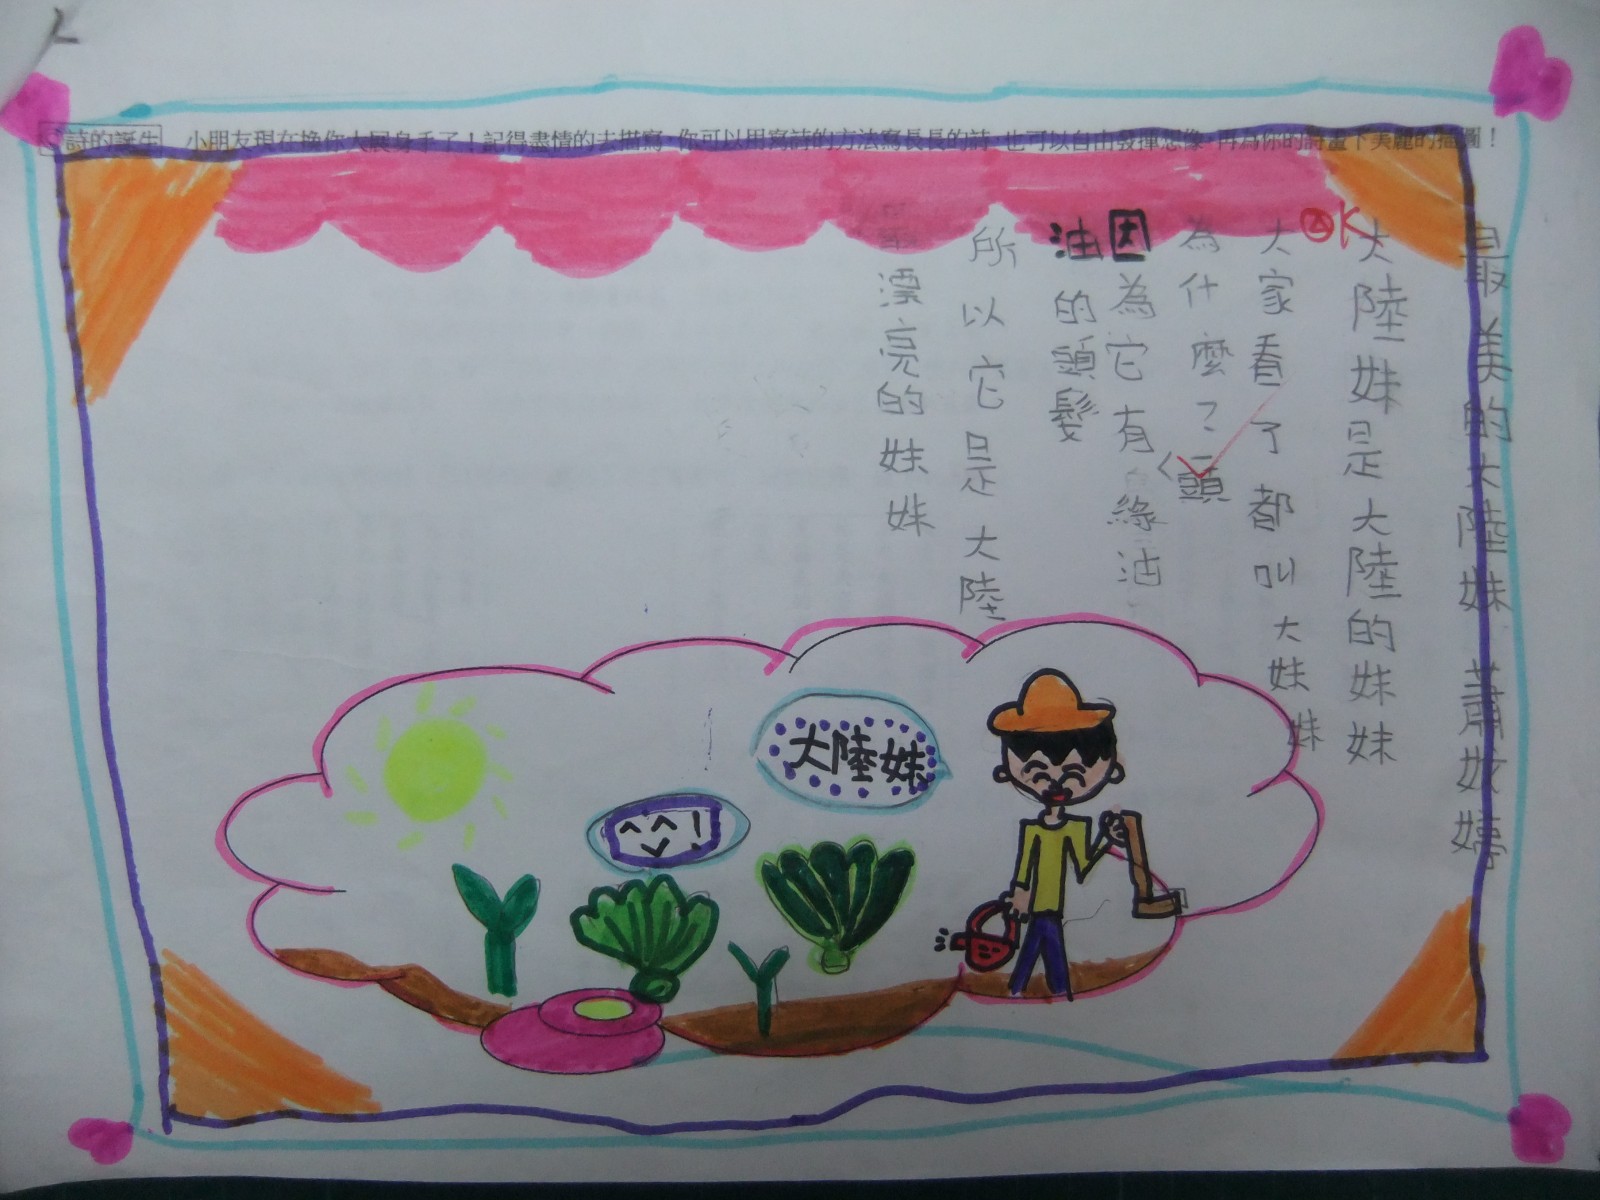 詩的誕生 小朋友現在換你大展身手了！記得盡情的去描寫，你可以用寫詩的方法寫長長的詩，也可以自由發揮想像，再為你的詩畫下美麗的插圖！
最美的大陸妹 蕭妏婷
OK
大陸妹是大陸的妹妹
大家看了都叫大妹妹
為什麼？
頭
因為它有綠油
油的頭髮
所以它是大陸
最漂亮的妹妹
大陸妹
^^!